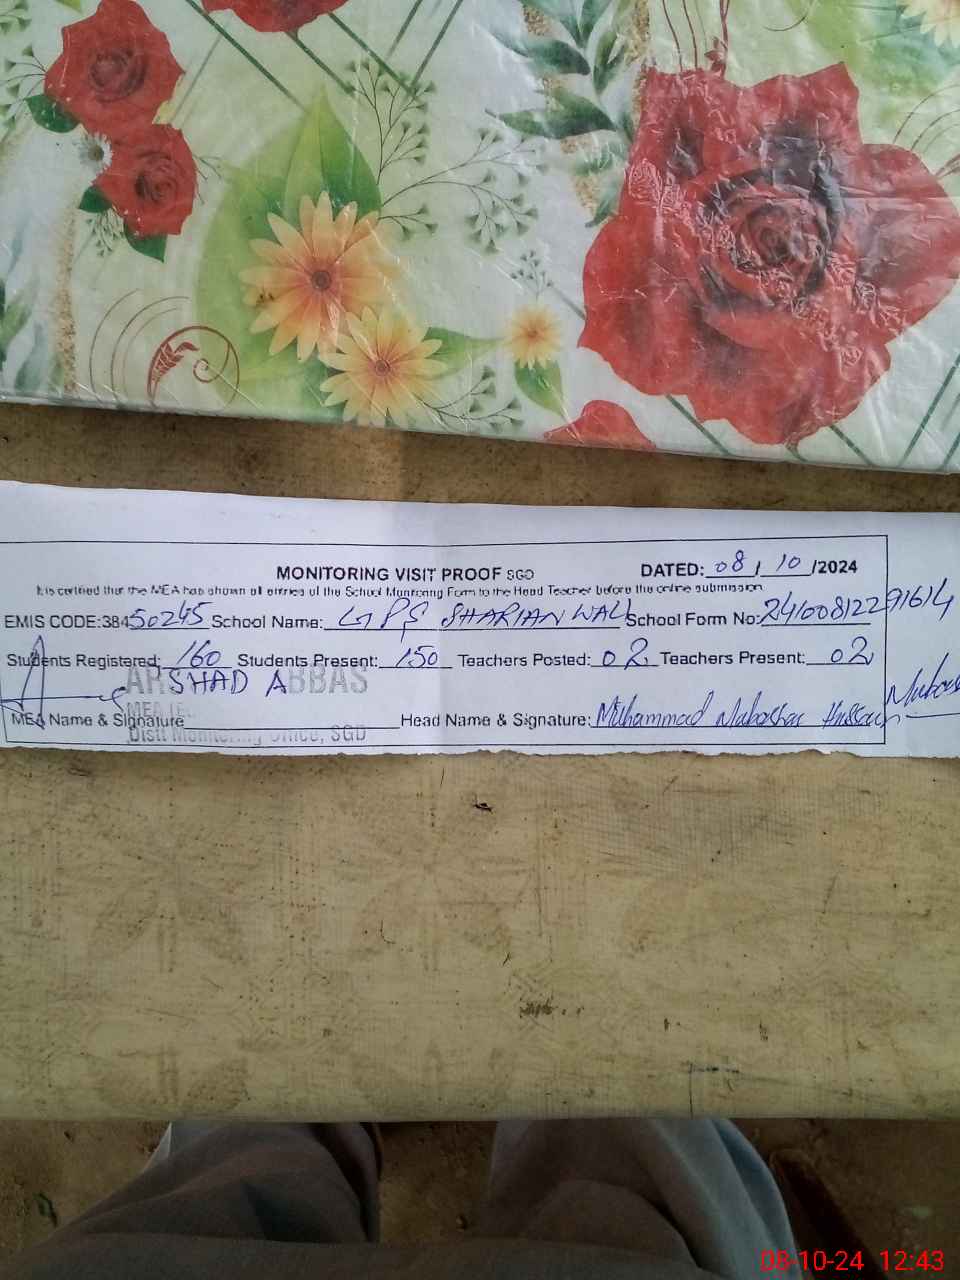 MONITORING VISIT PROOF SGD DATED: 08/10/2024
It is certified that the MEA has shown all entries of the School Monitoring Form to the Head Teacher before the online submission
EMIS CODE:38450245 School Name: GPS SHARIAN WALI School Form No: 24100812291614
Students Registered: 160 Students Present: 150 Teachers Posted: 02 Teachers Present: 02
ARSHAD ABBAS
MEA
MEA Name & Signature Head Name & Signature: Muhammad Hussain
Distt Monitoring Office, SGD
08-10-24 12:43